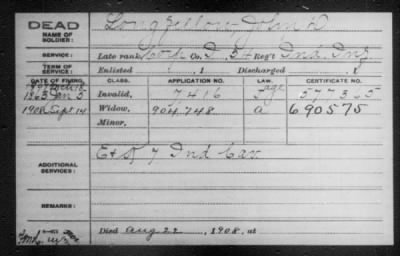 DEAD
NAME OF SOLDIER:
Longfellow, John D
SERVICE:
Late rank, Corp. Co. D, 54 Reg't Ind. Inf.
TERM OF SERVICE:
Enlisted , 1 Discharged , 1
DATE OF FILING. CLASS. APPLICATION NO. LAW. CERTIFICATE NO.
1863 Jan 5 Invalid, 7416 577355
1908 Sept 14 Widow, 904,748 a 690575
Minor,
ADDITIONAL SERVICES:
E & 7 Ind Cav
REMARKS:
Died Aug 22, 1908, at